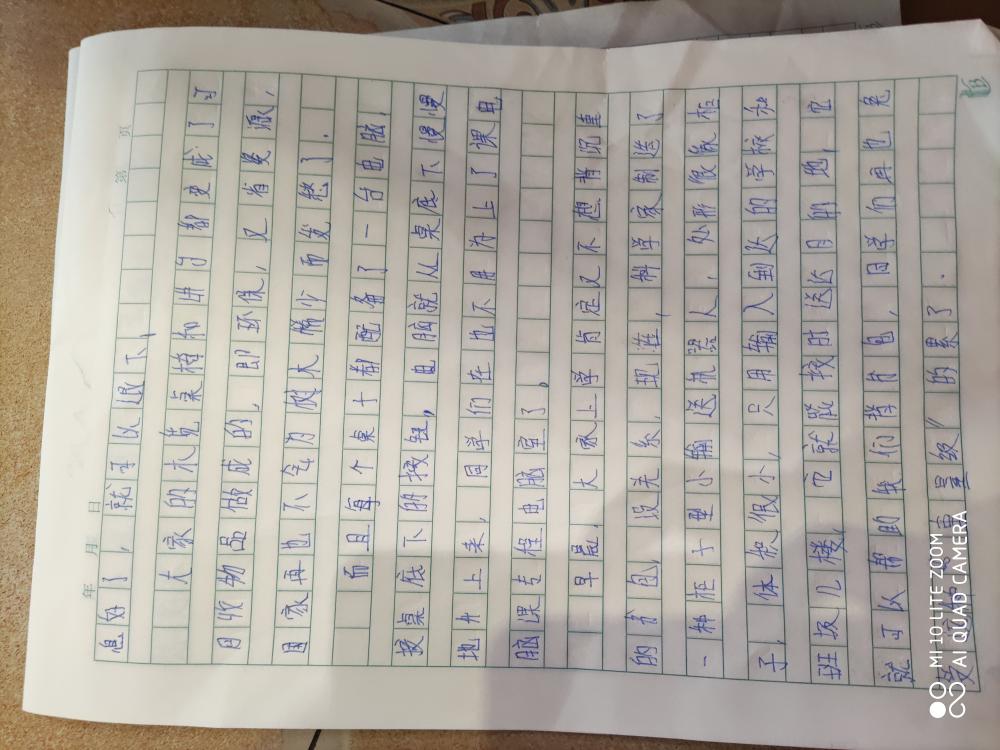 第 页
年 月 日
息好了，就可以退下，
大家的木凳桌椅和讲台都变成了可
回收物品做成的，即环保，又省资源，
国家再也不会为树木稀少而发愁了．
而且每个桌子都配备了一台电脑，
按桌底下的按钮，电脑就从桌底下慢慢
地升上来，同学们在也不用为上了课电
脑课去程电脑室了。
一早晨，大家上学肯定又不想背沉重
的书包，没关系，现在，科学家制造了
一种柜子型小输送机器人，外形很像柜
子，体积很小，只用输入到达的学校和
班级几楼，它就能按时送达目的地，它
就可以帮助我们背书包，同学们再也免
受 量级”的累了．
MI 10 LITE ZOOM
AI QUAD CAMERA